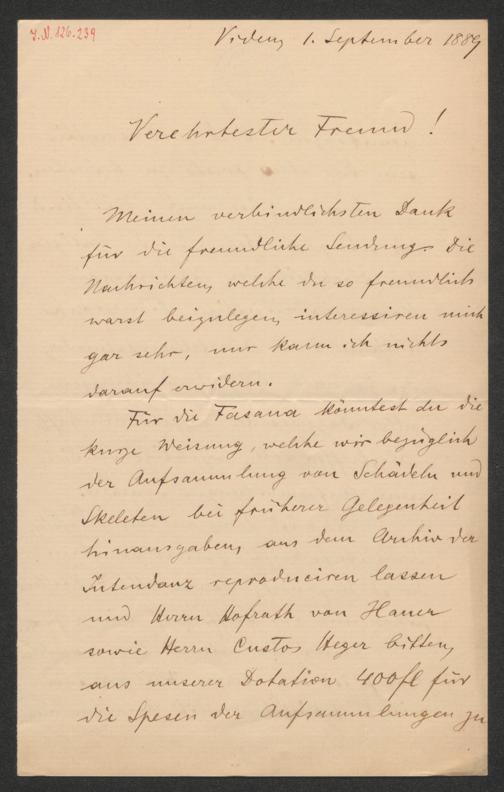 J.N. 126.239
Viden, 1. September 1889
Verehrtester Freund!
Meinen verbindlichsten Dank
für die freundliche Sendung. Die
Nachrichten, welche du so freundlich
warst beizulegen, interessiren mich
gar sehr, nur kann ich nichts
darauf erwidern.
Für die Fasana könntest du die
kurze Weisung, welche wir bezüglich
der Aufsammlung von Schädeln und
Skeleten bei früherer Gelegenheit
hinausgaben, aus dem Archiv der
Intendanz reproduciren lassen
und Herrn Hofrath von Hauer
sowie Herrn Custos Heger bitten,
aus unserer Dotation 400fl für
die Spesen der Aufsammlungen zu